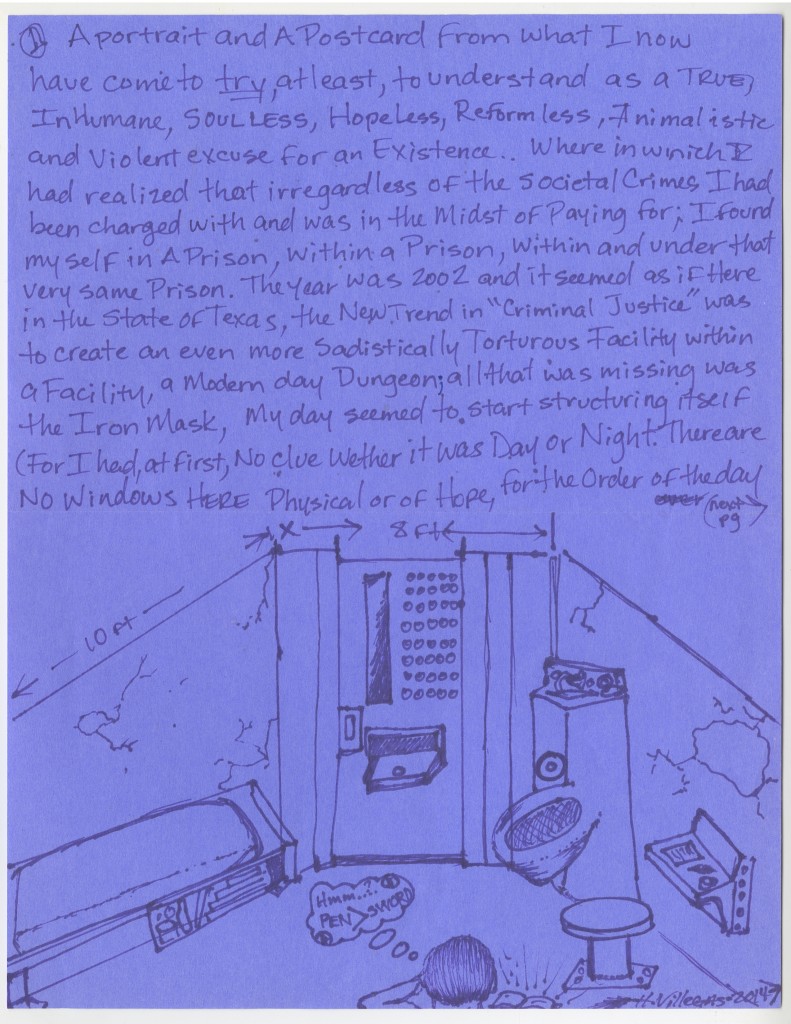 ① A portrait and A Postcard from what I now
have come to try, at least, to understand as a TRUE,
InHumane, SOULLESS, Hopeless, Reformless, Animalistic
and Violent excuse for an Existence.. Where in which I
had realized that irregardless of the Societal Crimes I had
been charged with and was in the Midst of Paying for; I found
my self in A Prison, within a Prison, within and under that
very same Prison. The year was 2002 and it seemed as if Here
in the State of Texas, the New Trend in "Criminal Justice" was
to create an even more Sadistically Torturous Facility within
a Facility, a Modern day Dungeon; all that was missing was
the Iron Mask, My day seemed to start structuring itself
(For I had, at first, No clue Wether it was Day or Night. There are
No Windows HERE Physical or of Hope, for the Order of the day
(next pg
X 8 ft
10 ft
Hmm..?
PEN > SWORD
2014